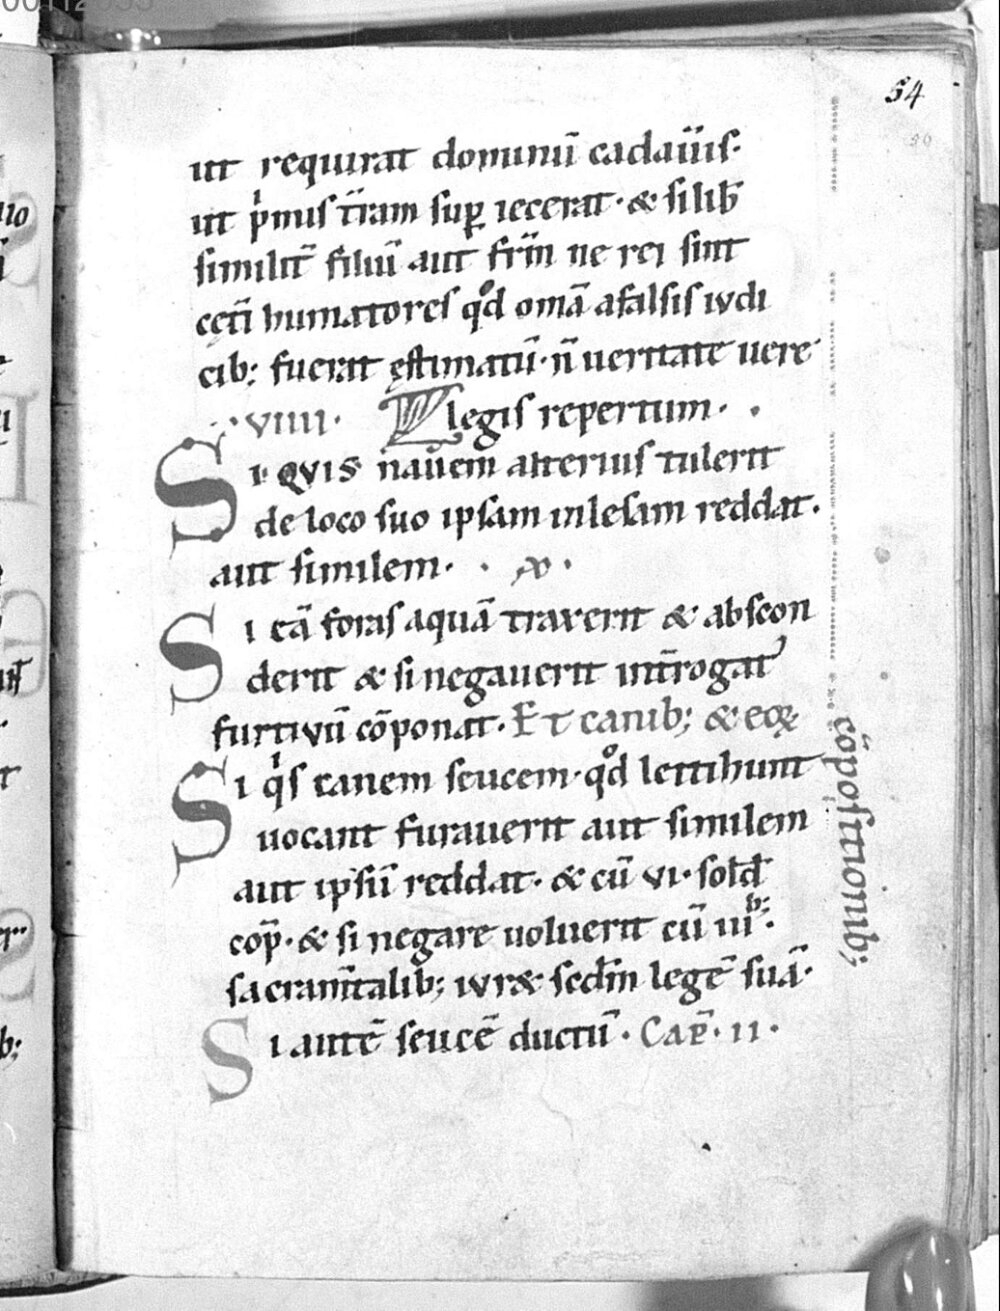 54
ut requirat dominū cadaūis·
ut p̍mus t̄ram suꝑ iecerat· & si lib̄
similit̄ filiū aut fr̄m ne rei sint
cęt̄i humatores qͦd omā a falsis iudi
cib; fuerat ęstimatū· n̄ ueritate uere
·VIIII· legis repertum·
SI QVIS nauem alterius tulerit
de loco suo ipsam inlesam reddat·
aut similem· · X ·
SI eā foras aquā traxerit & abscon
derit & si negauerit int̄rogat᷑
furtiuū cōponat· Et canib; & eoꝝ
SI q̍s canem seucem· qͦd leitihunt
uocant furauerit aut similem
aut ipsū reddat· & cū VI· solđ
cōp· & si negare uoluerit cū IIIᵇ;·
sacram̄talib; iur& sedm̄ legē suā·
SI autē seucē ductū· Cap̄· II·
cōpositionib;